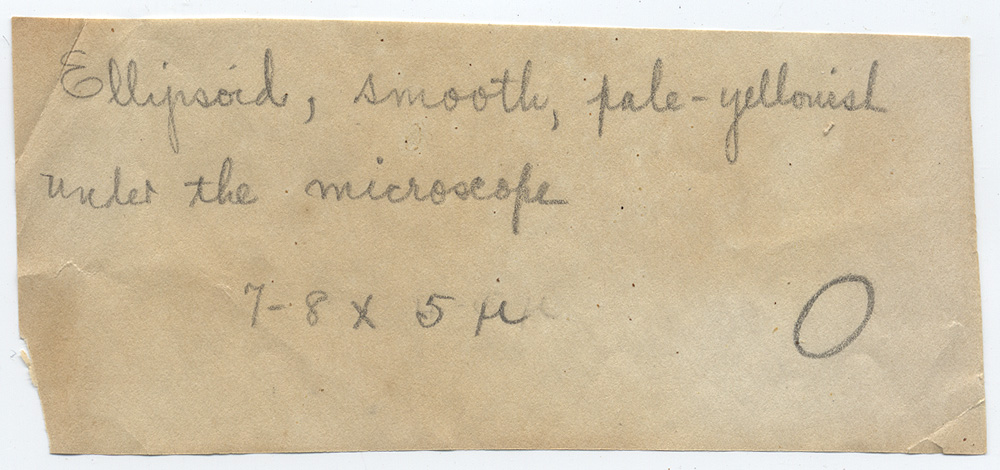 Ellipsoid, smooth, pale-yellowish
under the microscope
7-8 x 5 µ